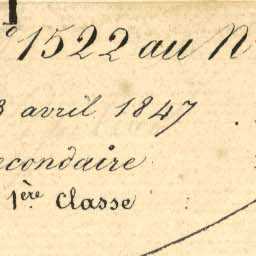 ° 1522 au N
3 avril 1847
econdaire
1ère Classe